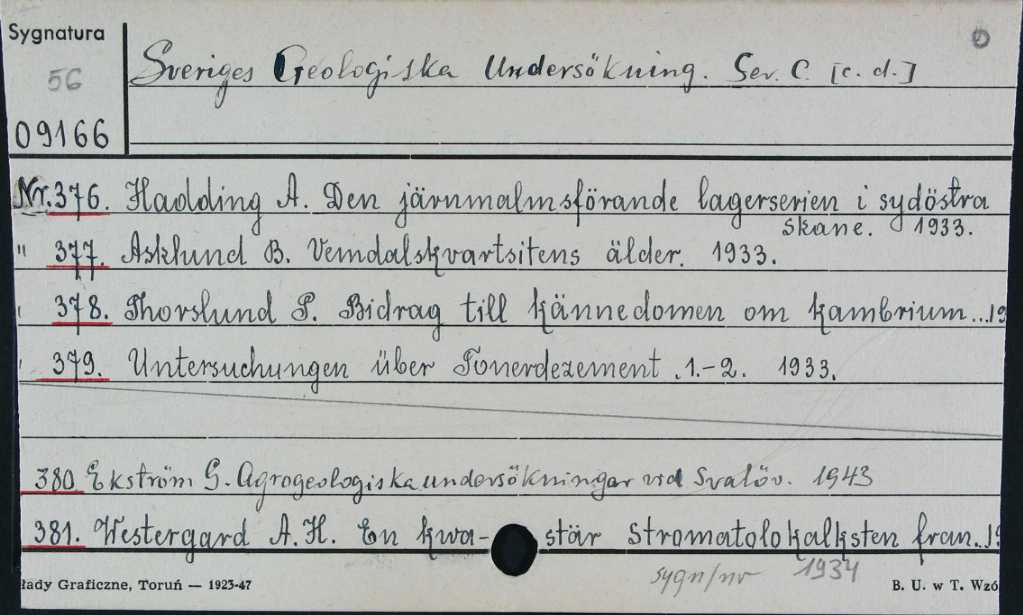 Sygnatura
56
09166
Sveriges Geologiska Undersökning. Ser. C. [c. d.]
Nr. 376. Hadding A. Den järnmalmsförande lagerserien i sydöstra
Skane. 1933.
" 377. Asklund B. Vemdalskvartsitens älder. 1933.
378. Thorslund P. Bidrag till kännedomen om kambrium...19
379. Untersuchungen über Tonerdezement .1.-2. 1933.
380 Ekström G. Agrogeologiska undersökningar vid Svalöv. 1943
381. Westergard A. H. En kwa- stär stromatolokalksten fran..19
sygn/nr 1934
łady Graficzne, Toruń — 1923-47
B. U. w T. Wzó